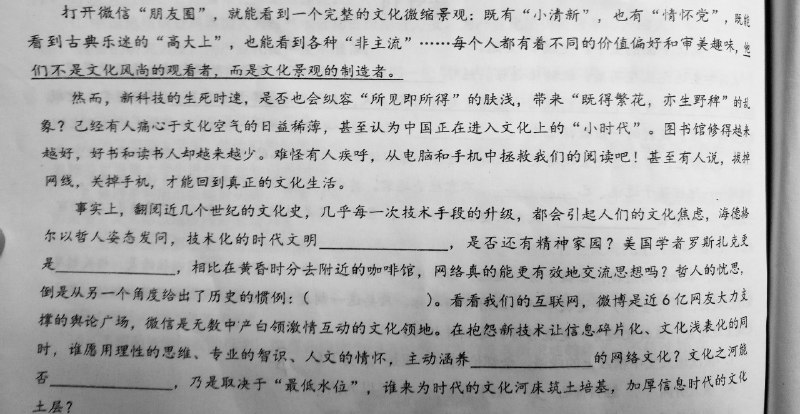 打开微信“朋友圈”，就能看到一个完整的文化微缩景观：既有“小清新”，也有“情怀党”，既能
看到古典乐迷的“高大上”，也能看到各种“非主流”……每个人都有着不同的价值偏好和审美趣味，他
们不是文化风尚的观看者，而是文化景观的制造者。
然而，新科技的生死时速，是否也会纵容“所见即所得”的肤浅，带来“既得繁花，亦生野稗”的乱
象？已经有人痛心于文化空气的日益稀薄，甚至认为中国正在进入文化上的“小时代”。图书馆修得越来
越好，好书和读书人却越来越少。难怪有人疾呼，从电脑和手机中拯救我们的阅读吧！甚至有人说，拔掉
网线，关掉手机，才能回到真正的文化生活。
事实上，翻阅近几个世纪的文化史，几乎每一次技术手段的升级，都会引起人们的文化焦虑，海德格
尔以哲人姿态发问，技术化的时代文明____________，是否还有精神家园？美国学者罗斯扎克更
是____________，相比在黄昏时分去附近的咖啡馆，网络真的能更有效地交流思想吗？哲人的忧思，
倒是从另一个角度给出了历史的惯例：（　　　　　　）。看看我们的互联网，微博是近6亿网友大力支
撑的舆论广场，微信是无数中产白领激情互动的文化领地。在抱怨新技术让信息碎片化、文化浅表化的同
时，谁愿用理性的思维、专业的智识、人文的情怀，主动涵养____________的网络文化？文化之河能
否____________，乃是取决于“最低水位”，谁来为时代的文化河床筑土培基，加厚信息时代的文化
土层？